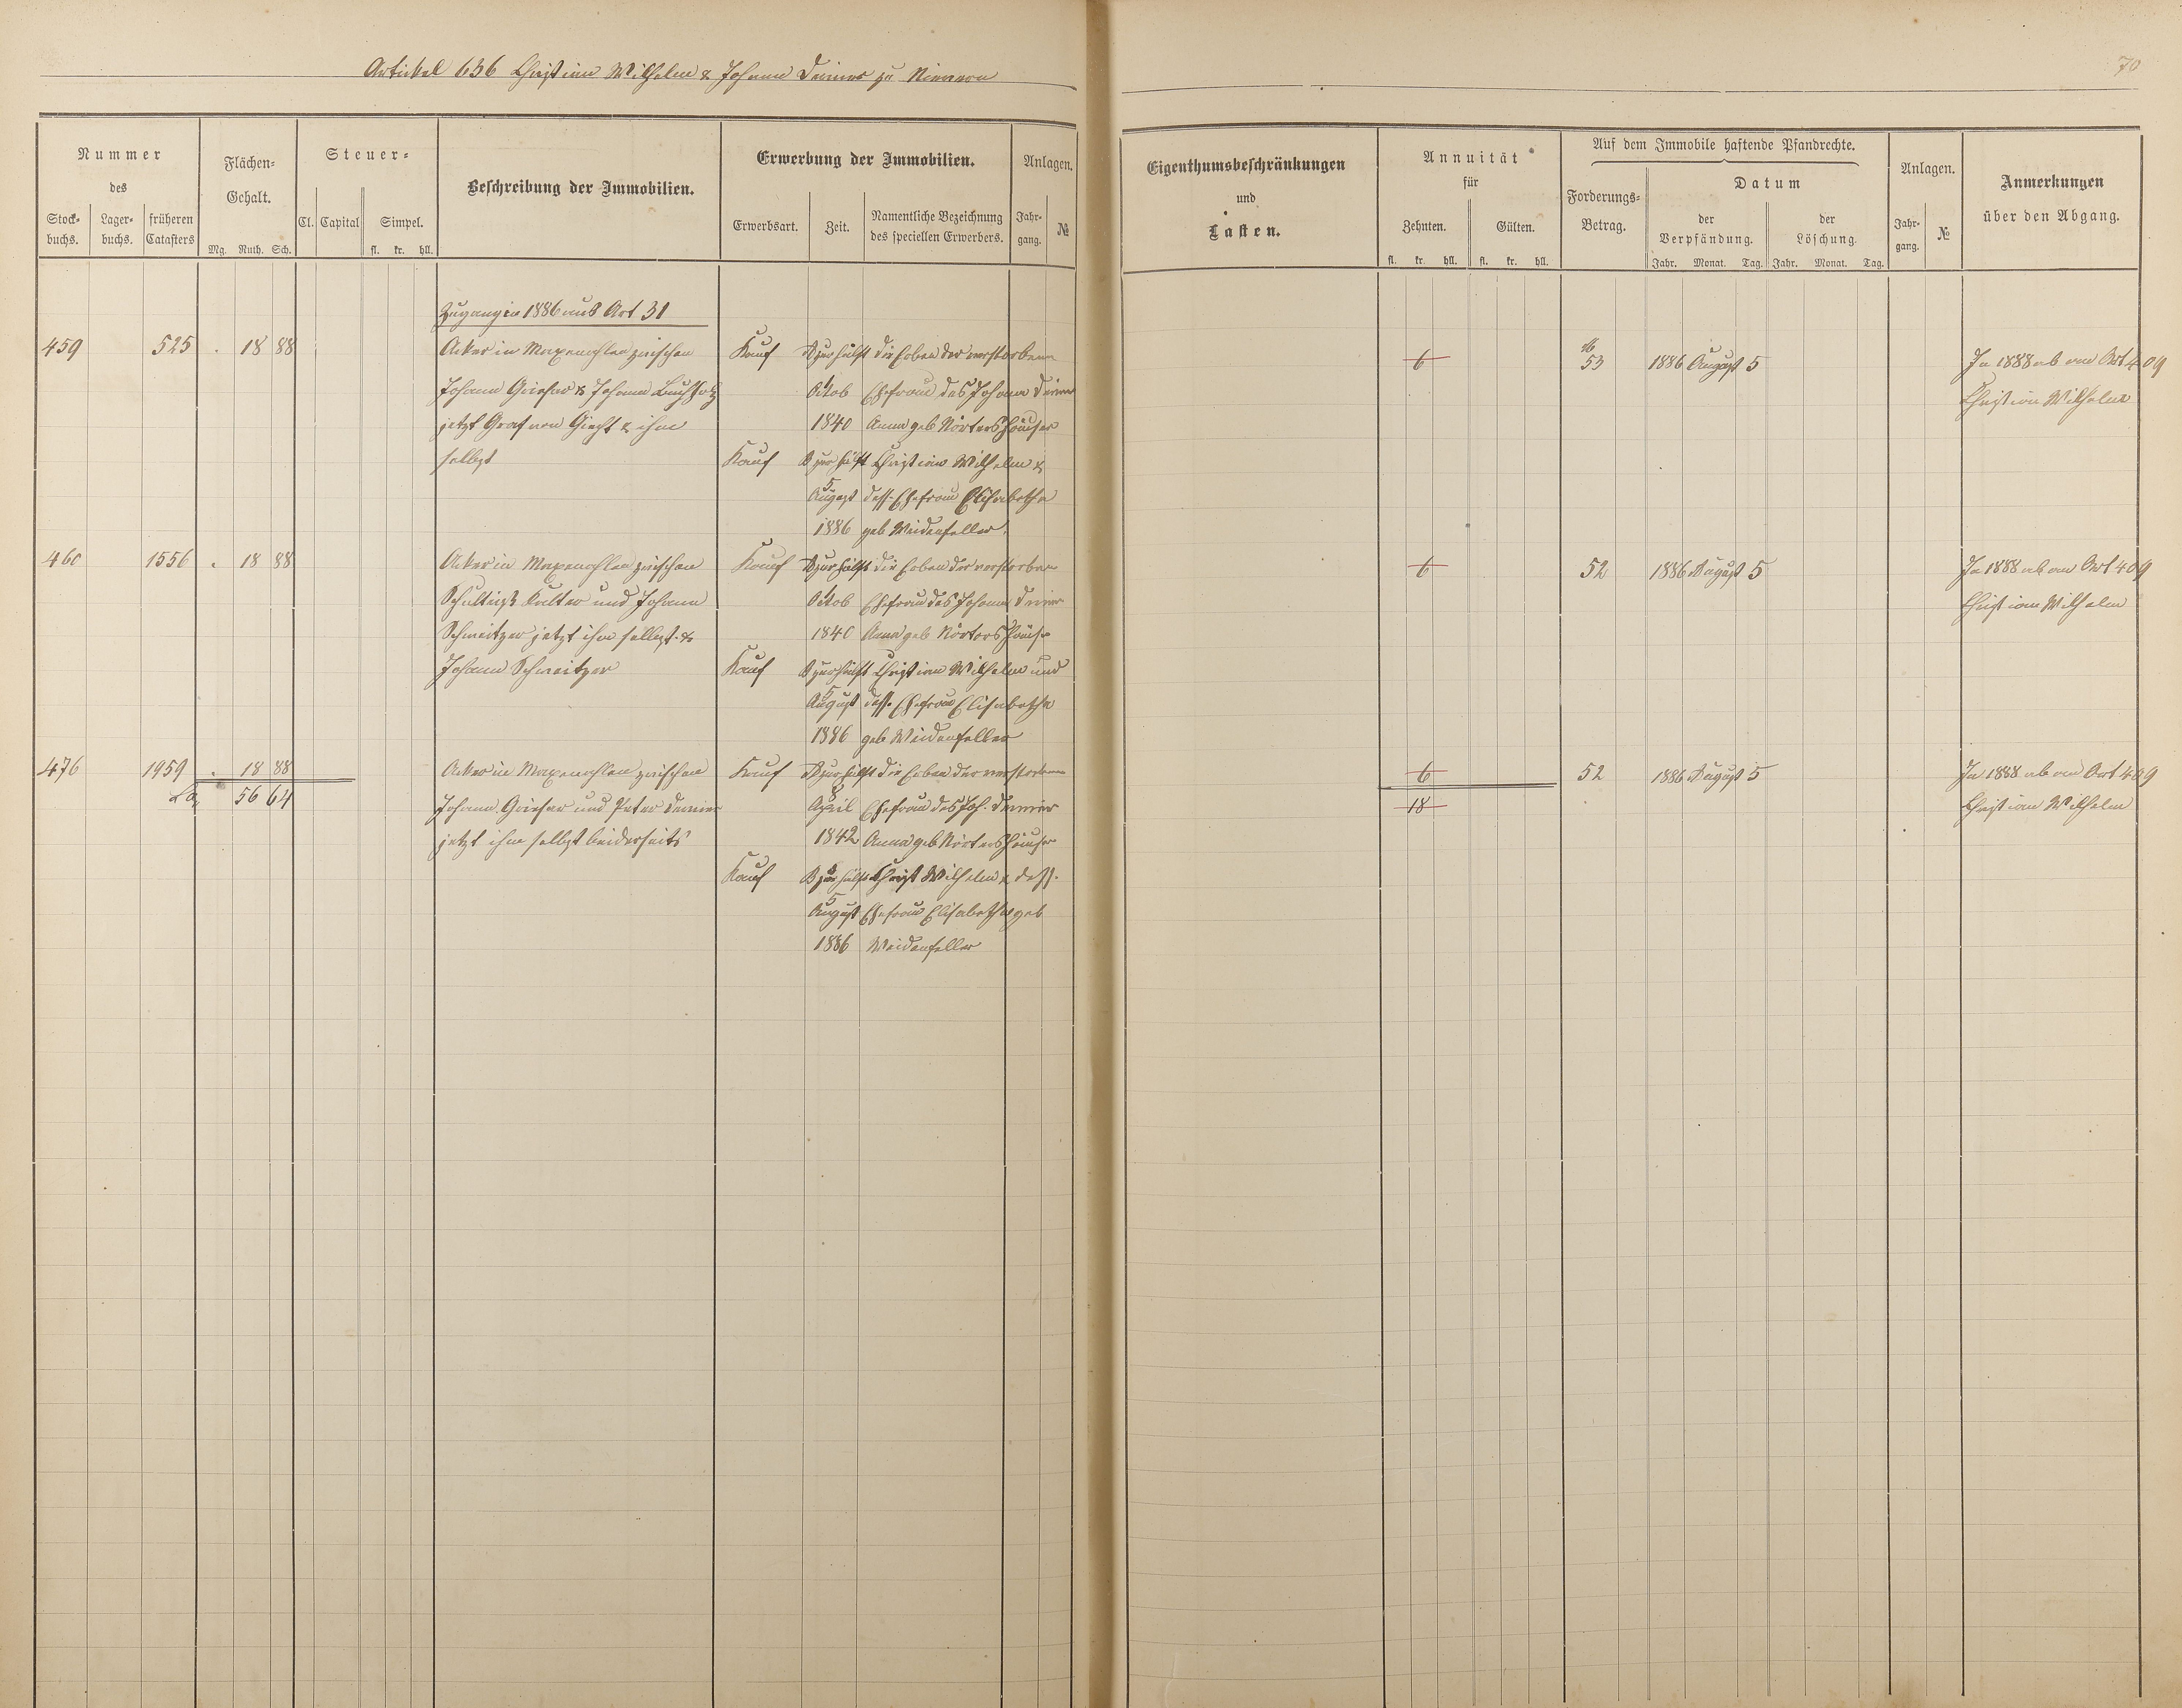 Artikel 636 Christian Wilhelm & Johann Deiner zu Nievern
70
Nummer
des
Stock-
buchs.
Lager-
buchs.
früheren
Catasters
Flächen-
Gehalt.
Mg. Ruth. Sch.
Steuer-
Cl. Capital Simpel.
fl. kr. hll.
Beschreibung der Immobilien.
Erwerbung der Immobilien.
Erwerbsart. Zeit. Namentliche Bezeichnung
des speciellen Erwerbers.
Anlagen.
Jahr-
gang.
№
Eigenthumsbeschränkungen
und
Lasten.
Annuität
für
Zehnten. Gülten.
fl. kr. hll. fl. kr. hll.
Auf dem Immobile haftende Pfandrechte.
Forderungs-
Betrag.
Datum
der
Verpfändung.
der
Löschung.
Jahr. Monat. Tag. Jahr. Monat. Tag.
Anlagen.
Jahr-
gang.
№
Anmerkungen
über den Abgang.
Zugang in 1886 aus Art 31
459 525 . 18 88 Acker in zwischen Kauf A zur Hälft die Erben der verstorbenen 6 53 1886 August 5 In 1888 ab an Art 409
Johann Grieser & Johann Buchholz 1 Oktob Ehefrau des Johann Christian Wilhelm
jetzt Graf von Giech & ihm 1840 Anna geb Nörtershäuser
selbst Kauf B zur Hälft Christian Wilhelm &
5 August dess. Ehefrau Elisabetha
1886 geb Weidenfeller
460 1556 . 18 88 Acker in zwischen Kauf A zur Hälft die Erben der verstorben 6 52 1886 August 5 In 1888 ab an Art 409
Schultheiß und Johann 1 Oktob Ehefrau des Johann Christian Wilhelm
Schweitzer jetzt ihm selbst & 1840 Anna geb Nörtershäuser
Johann Schweitzer Kauf B zur Hälft Christian Wilhelm und
5 August dess. Ehefrau Elisabetha
1886 geb Weidenfeller
476 1959 . 18 88 Acker in zwischen Kauf A zur Hälft die Erben der verstorbenen 6 52 1886 August 5 In 1888 ab an Art 409
56 64 Johann Grieser und Peter 8 April Ehefrau des Joh. 18 Christian Wilhelm
jetzt ihm selbst beiderseits 1842 Anna geb Nörtershäuser
Kauf B zur Hälft Christ Wilhelm & dess.
5 August Ehefrau Elisabetha geb
1886 Weidenfeller